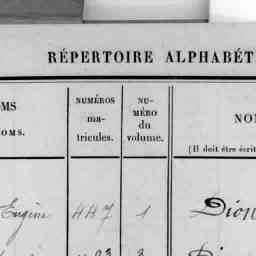 RÉPERTOIRE ALPHABÉT
OMS
OMS.
NUMÉROS
ma-
tricules.
NU-
MÉRO
du
volume.
NO
(Il doit être écrit
Eugène 447 1 Dion